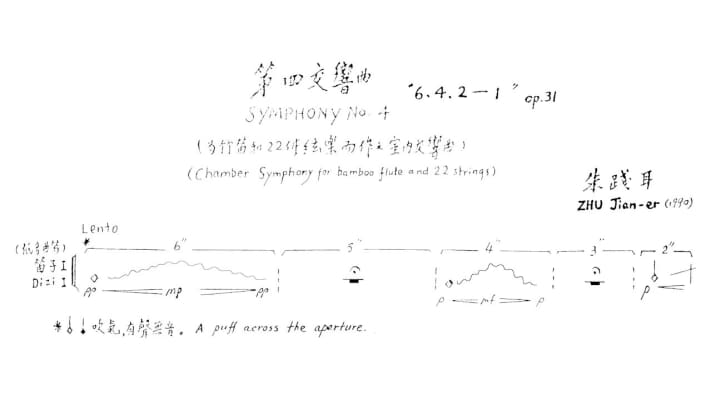 第四交響曲 "6.4.2—1" op.31
SYMPHONY No. 4
(为竹笛和22件絃樂而作之室内交響曲)
(Chamber Symphony for bamboo flute and 22 strings)
朱踐耳
ZHU Jian-er (1990)
Lento
* 6" 5" 4" 3" 2"
(低音曲笛)
笛子 I
Dizi I
pp mp pp p mf p p
* 吹氣,有聲無音。 A puff across the aperture.